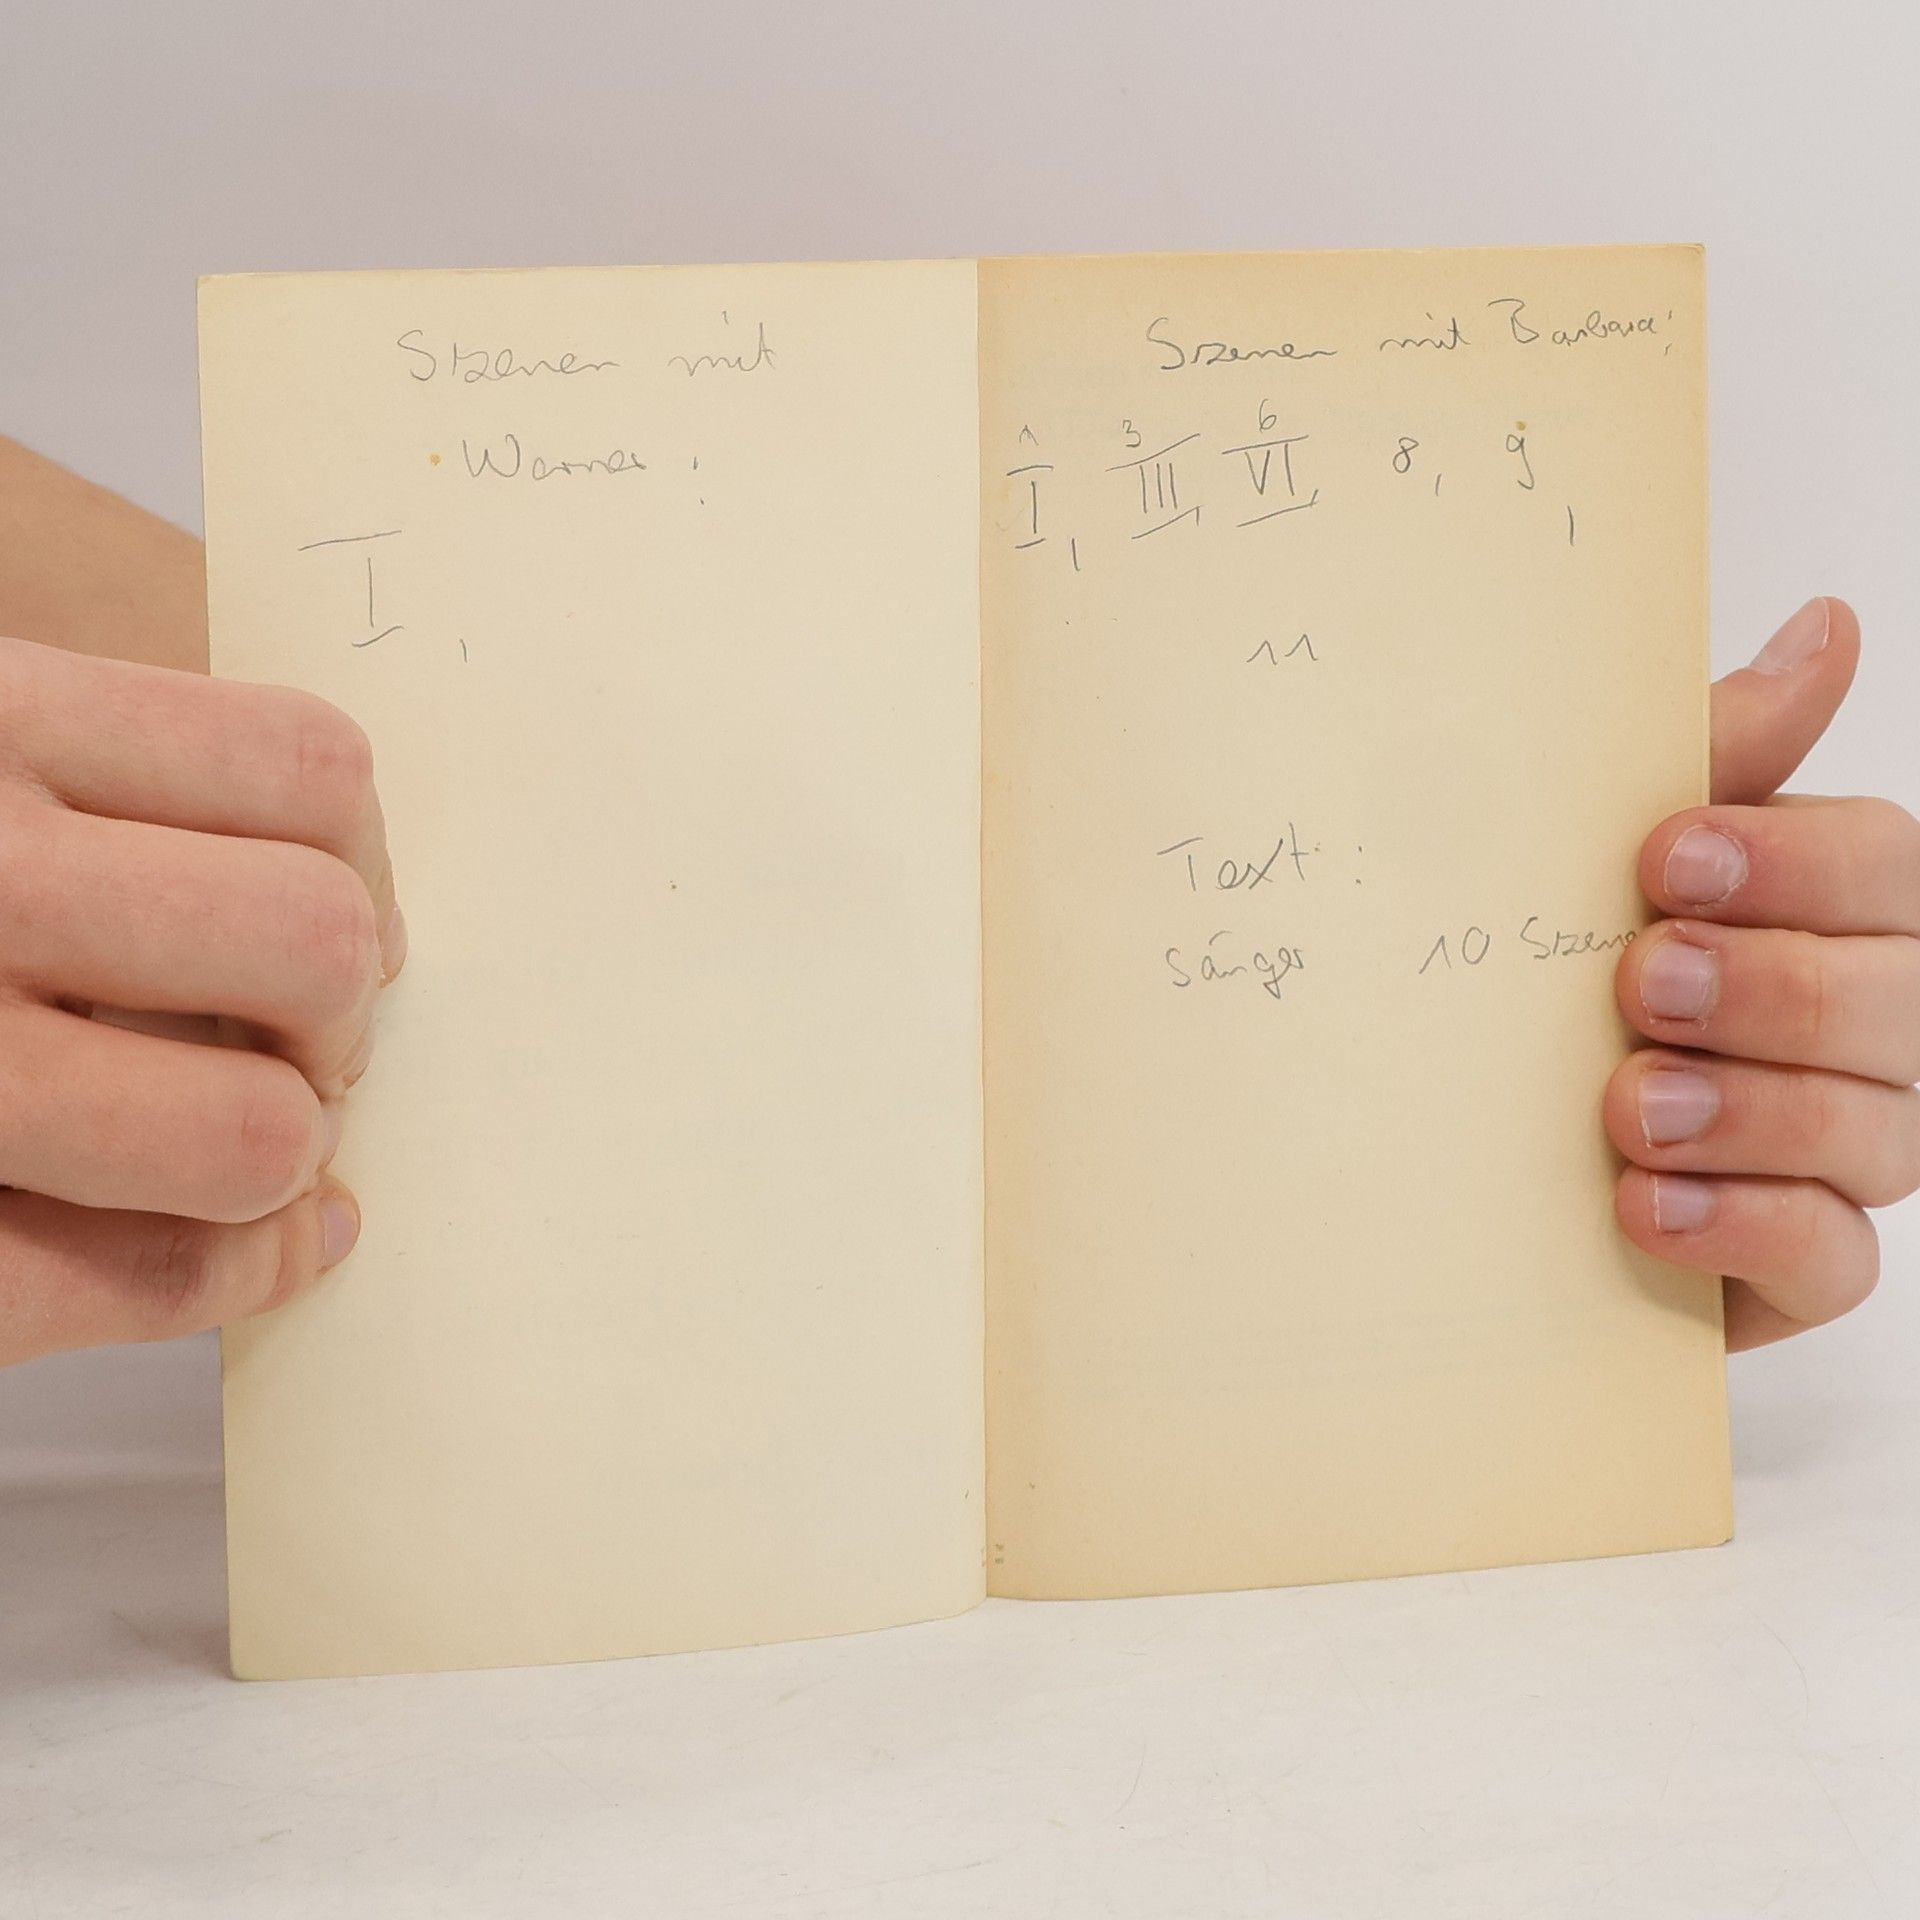 Szenen mit
Werner :
I ,
Szenen mit Barbara :
1 3 6
I , III VI , 8 , 9 ,
11
Text :
Sänger 10 Szene